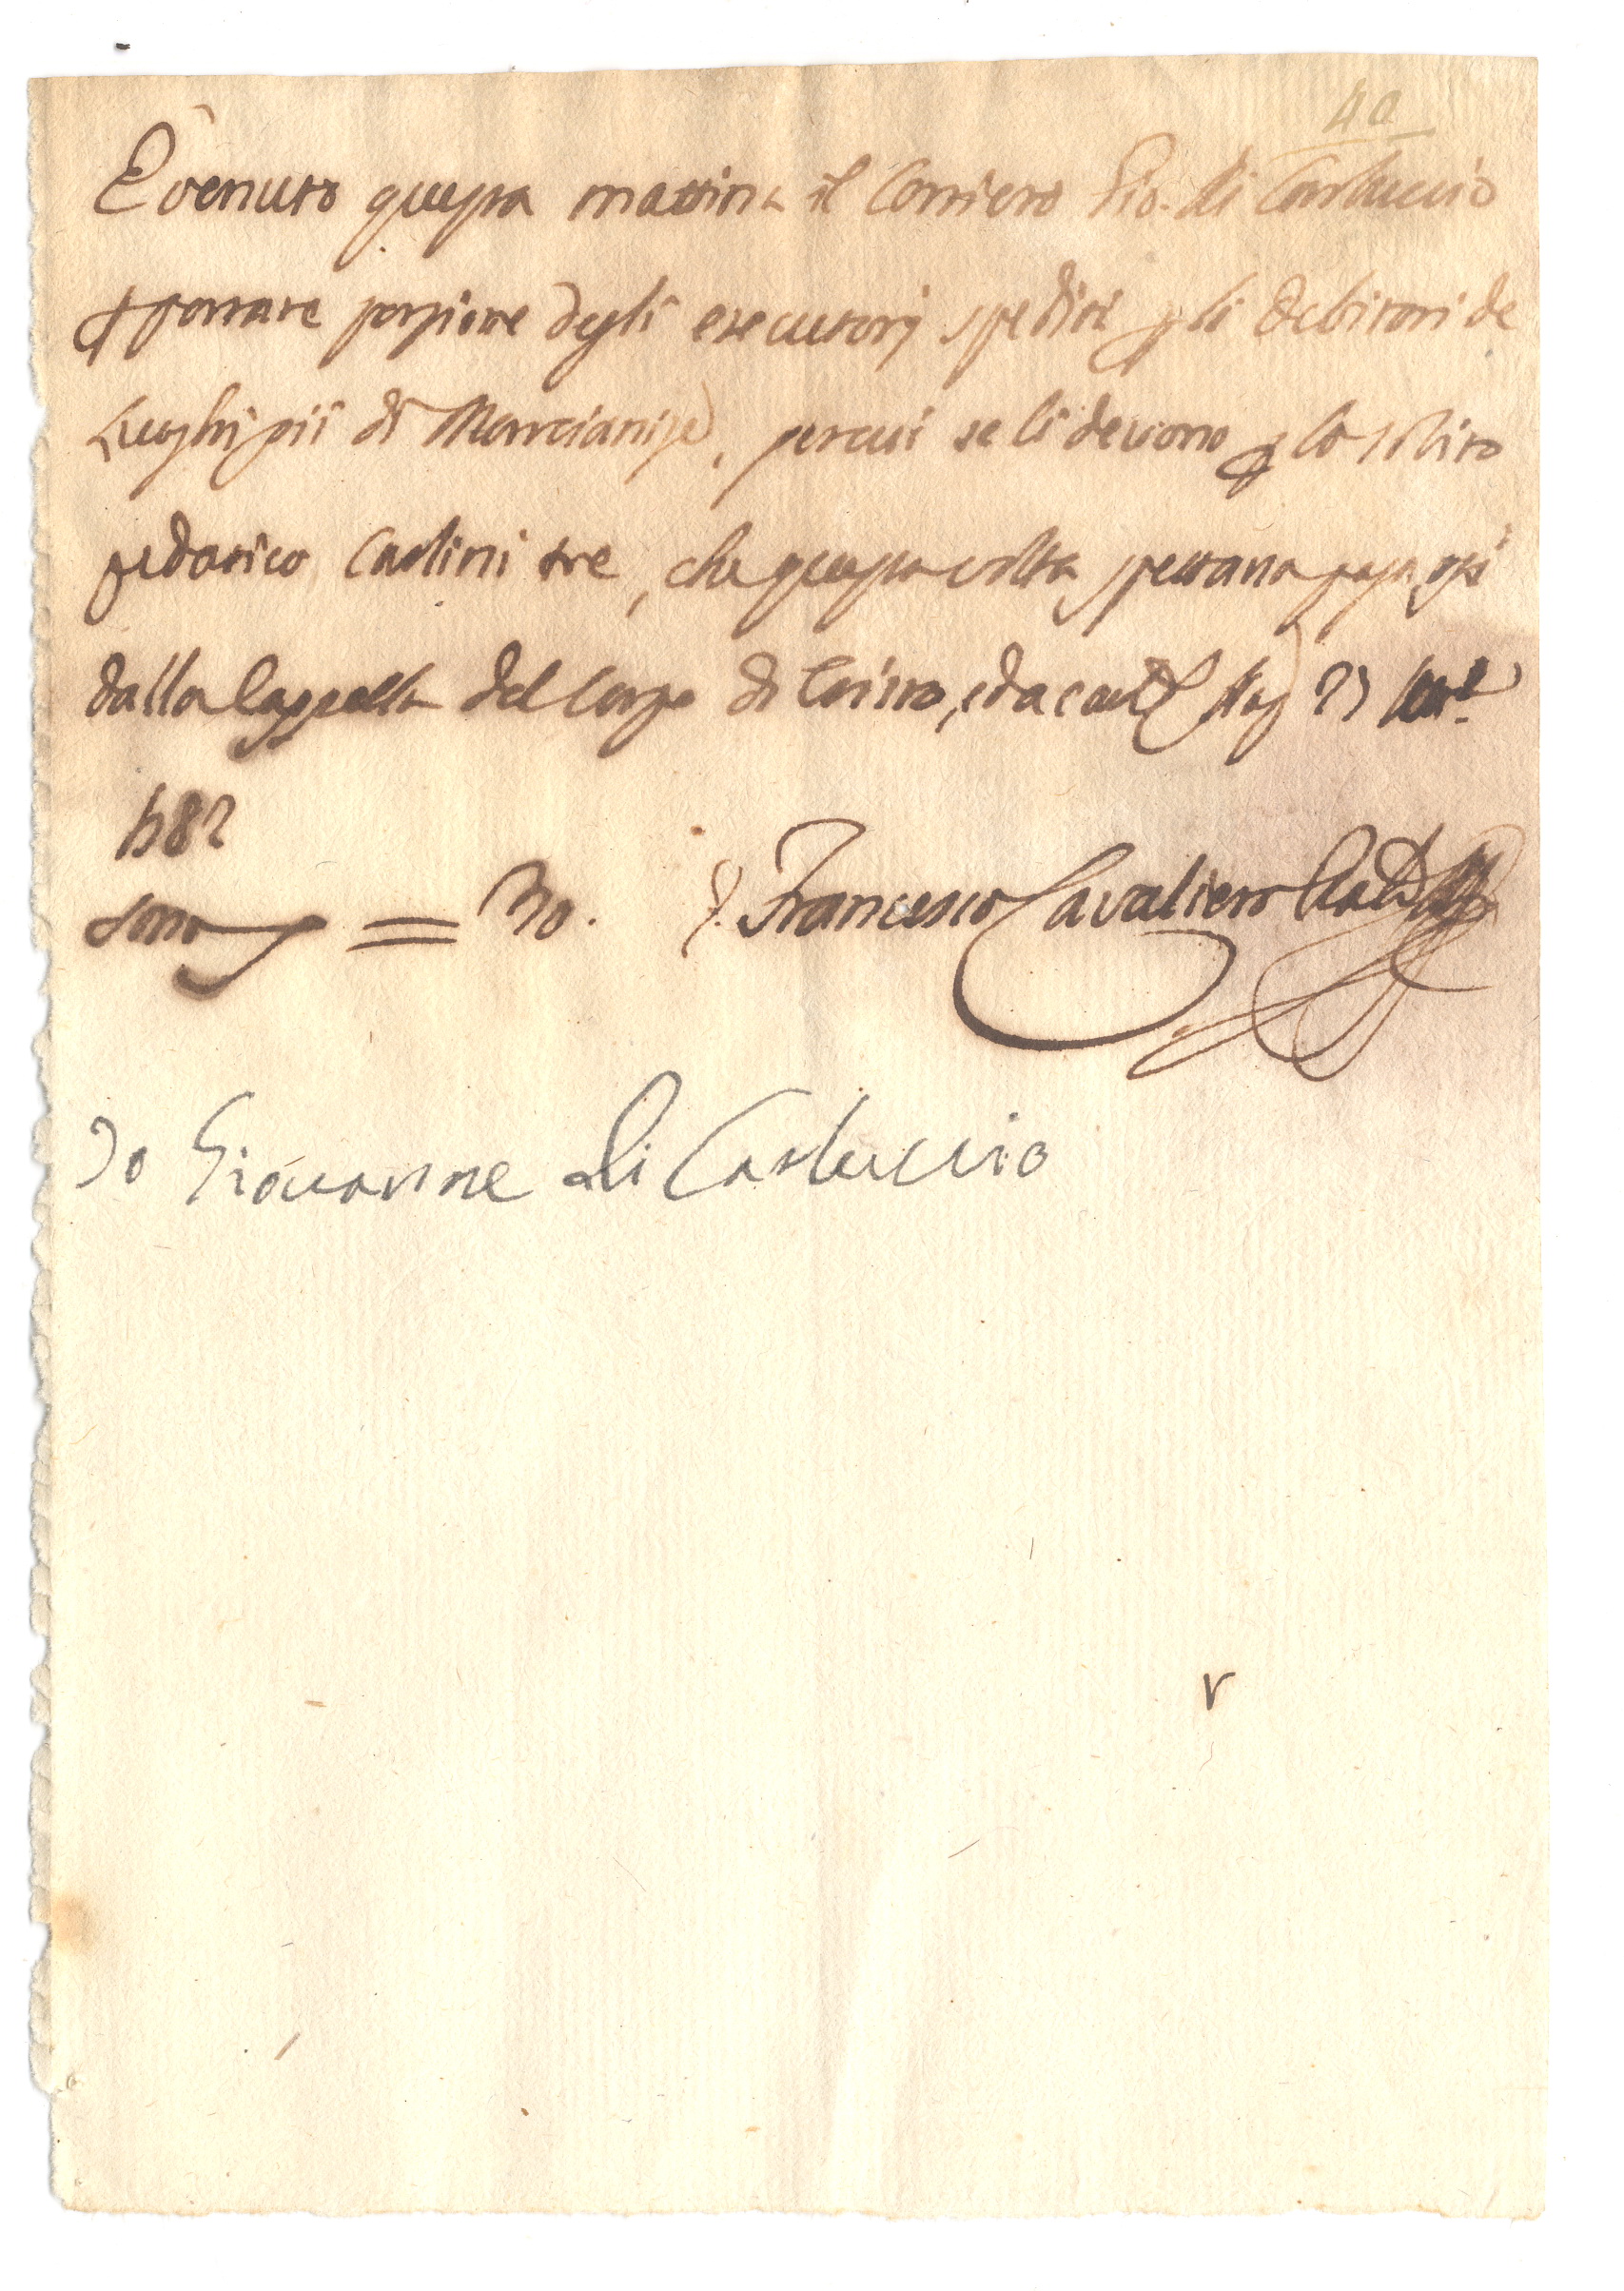 40
È venuto questa mattina il Corriero Gio. di Carluccio
p portare porzione degli executorj spediti p li debitori de
Luoghi pii di Marcianise, per cui se li devono p lo solito
pedatico Carlini tre, che questa volta spettana pagarsi
dalla Cappella del Corpo di Cristo, ed a caut.
1782
sono = 30. Francesco Cavaliero
Io Giovanne di Carluccio